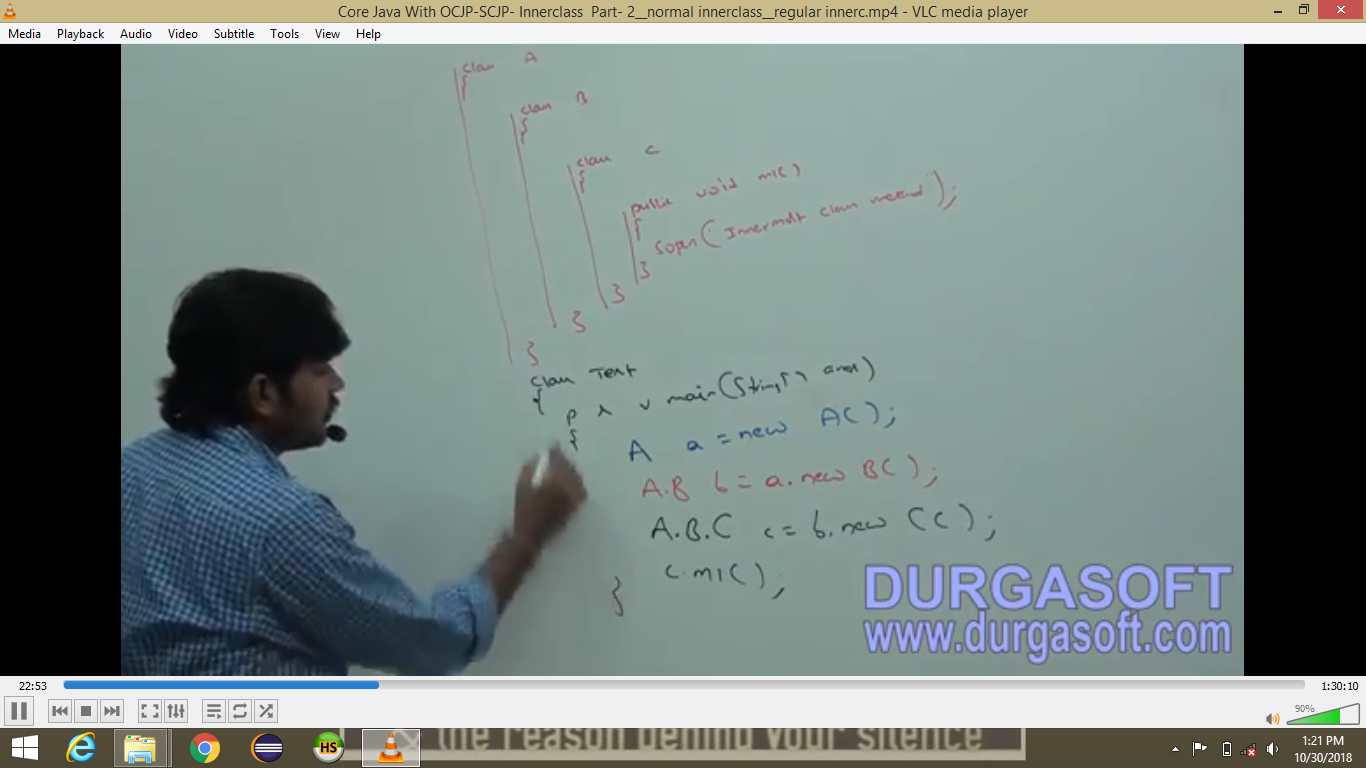 Core Java With OCJP-SCJP- Innerclass Part- 2__normal innerclass__regular innerc.mp4 - VLC media player
Media Playback Audio Video Subtitle Tools View Help
class A
{
class B
{
class C
{
public void m1()
{
Sopln("Innermost class method");
}
}
}
}
class Test
{
p s v main(String[] args)
{
A a = new A();
A.B b = a.new B();
A.B.C c = b.new C();
c.m1();
}
DURGASOFT
www.durgasoft.com
22:53
1:30:10
90%
the reason behind your silence
HS
1:21 PM
10/30/2018